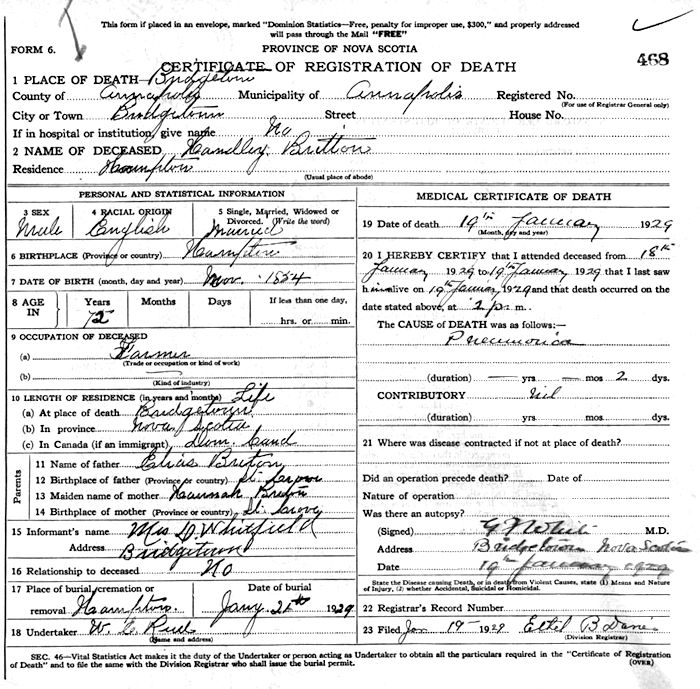 This form if placed in an envelope, marked "Dominion Statistics—Free, penalty for improper use, $300," and properly addressed
will pass through the Mail "FREE"
FORM 6.
PROVINCE OF NOVA SCOTIA
CERTIFICATE OF REGISTRATION OF DEATH
468
1 PLACE OF DEATH Bridgetown
County of Annapolis Municipality of Annapolis Registered No.
(For use of Registrar General only)
City or Town Bridgetown Street House No.
If in hospital or institution, give name No
2 NAME OF DECEASED Handley Britton
Residence Hampton
(Usual place of abode)
PERSONAL AND STATISTICAL INFORMATION
3 SEX 4 RACIAL ORIGIN 5 Single, Married, Widowed or
Divorced. (Write the word)
Male English Married
6 BIRTHPLACE (Province or country) Hampton
7 DATE OF BIRTH (month, day and year) Nov. 1854
8 AGE IN Years Months Days If less than one day,
72 hrs. or min.
9 OCCUPATION OF DECEASED
(a) Farmer
(Trade or occupation or kind of work)
(b)
(Kind of industry)
10 LENGTH OF RESIDENCE (in years and months) Life
(a) At place of death Bridgetown
(b) In province Nova Scotia
(c) In Canada (if an immigrant) Dom.
Parents
11 Name of father Elias Briton
12 Birthplace of father (Province or country) St.
13 Maiden name of mother Hannah Briton
14 Birthplace of mother (Province or country) St.
15 Informant's name Mrs D. Whitfield
Address Bridgetown
16 Relationship to deceased No
17 Place of burial, cremation or Date of burial
removal Hampton. Jany. 21st 1929
18 Undertaker W.
(Name and address)
MEDICAL CERTIFICATE OF DEATH
19 Date of death 19th January 1929
(Month, day and year)
20 I HEREBY CERTIFY that I attended deceased from 18th
January 1929 to 19th January 1929 that I last saw
him alive on 19th January 1929 and that death occurred on the
date stated above, at 2 p.m.
The CAUSE of DEATH was as follows:—
Pneumonia
(duration) — yrs — mos 2 dys.
CONTRIBUTORY Nil
(duration) yrs. mos. dys.
21 Where was disease contracted if not at place of death?
Did an operation precede death? Date of
Nature of operation
Was there an autopsy?
(Signed) M.D.
Address Bridgetown Nova Scotia
Date 19th January 1929
State the Disease causing Death, or in death from Violent Causes, state (1) Means and Nature
of Injury, (2) whether Accidental, Suicidal or Homicidal.
22 Registrar's Record Number
23 Filed Jan 19 1929 Ethel B
(Division Registrar)
SEC. 46—Vital Statistics Act makes it the duty of the Undertaker or person acting as Undertaker to obtain all the particulars required in the "Certificate of Registration
of Death" and to file the same with the Division Registrar who shall issue the burial permit.
(OVER)